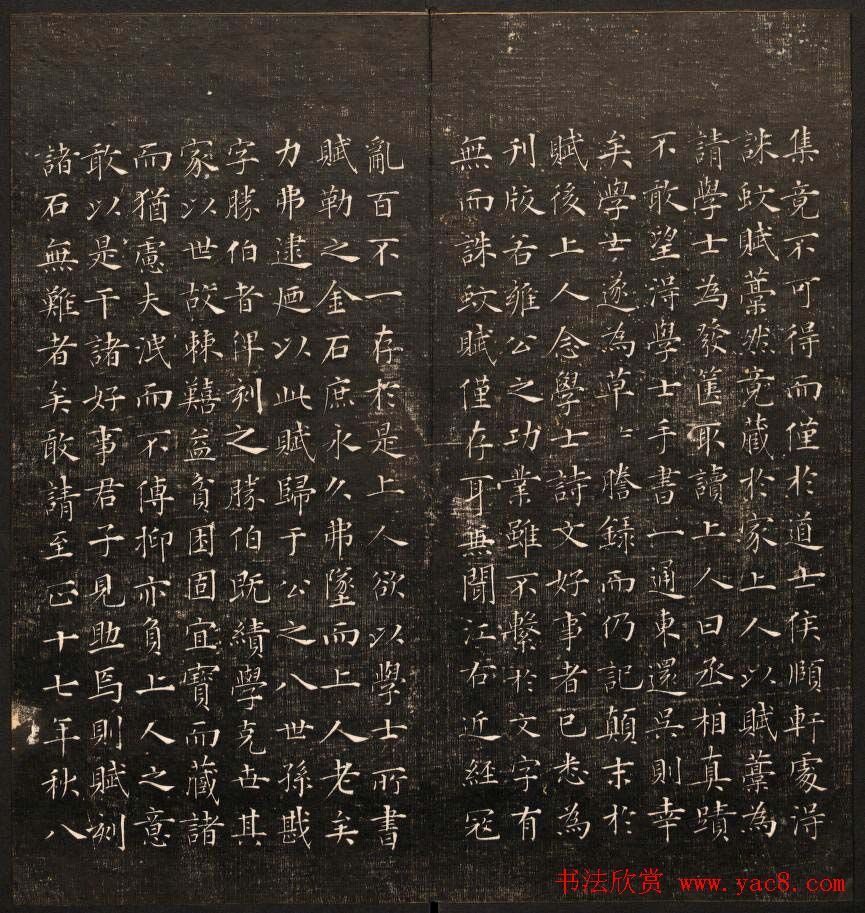 集竟不可得而僅於道士侯頤軒處得
誅蚊賦藁然竟藏於家上人以賦藁為
請學士為發篋取讀上人曰丞相真蹟
不敢望得學士手書一通東還吳則幸
矣學士遂為草〻謄錄而仍記顛末於
賦後上人念學士詩文好事者已悉為
刊版若雍公之功業雖不繫於文字有
無而誅蚊賦僅存耳無聞江右近經寇
亂百不一存於是上人欲以學士所書
賦勒之金石庶永久弗墜而上人老矣
力弗逮廼以此賦歸于公之八世孫戡
字勝伯者俾刻之勝伯既績學克世其
家以世故棘囏益貧困固宜寶而藏諸
而猶慮夫泯而不傳抑亦負上人之意
敢以是干諸好事君子見助焉則賦刻
諸石無難者矣敢請至正十七年秋八
书法欣赏 www.yac8.com